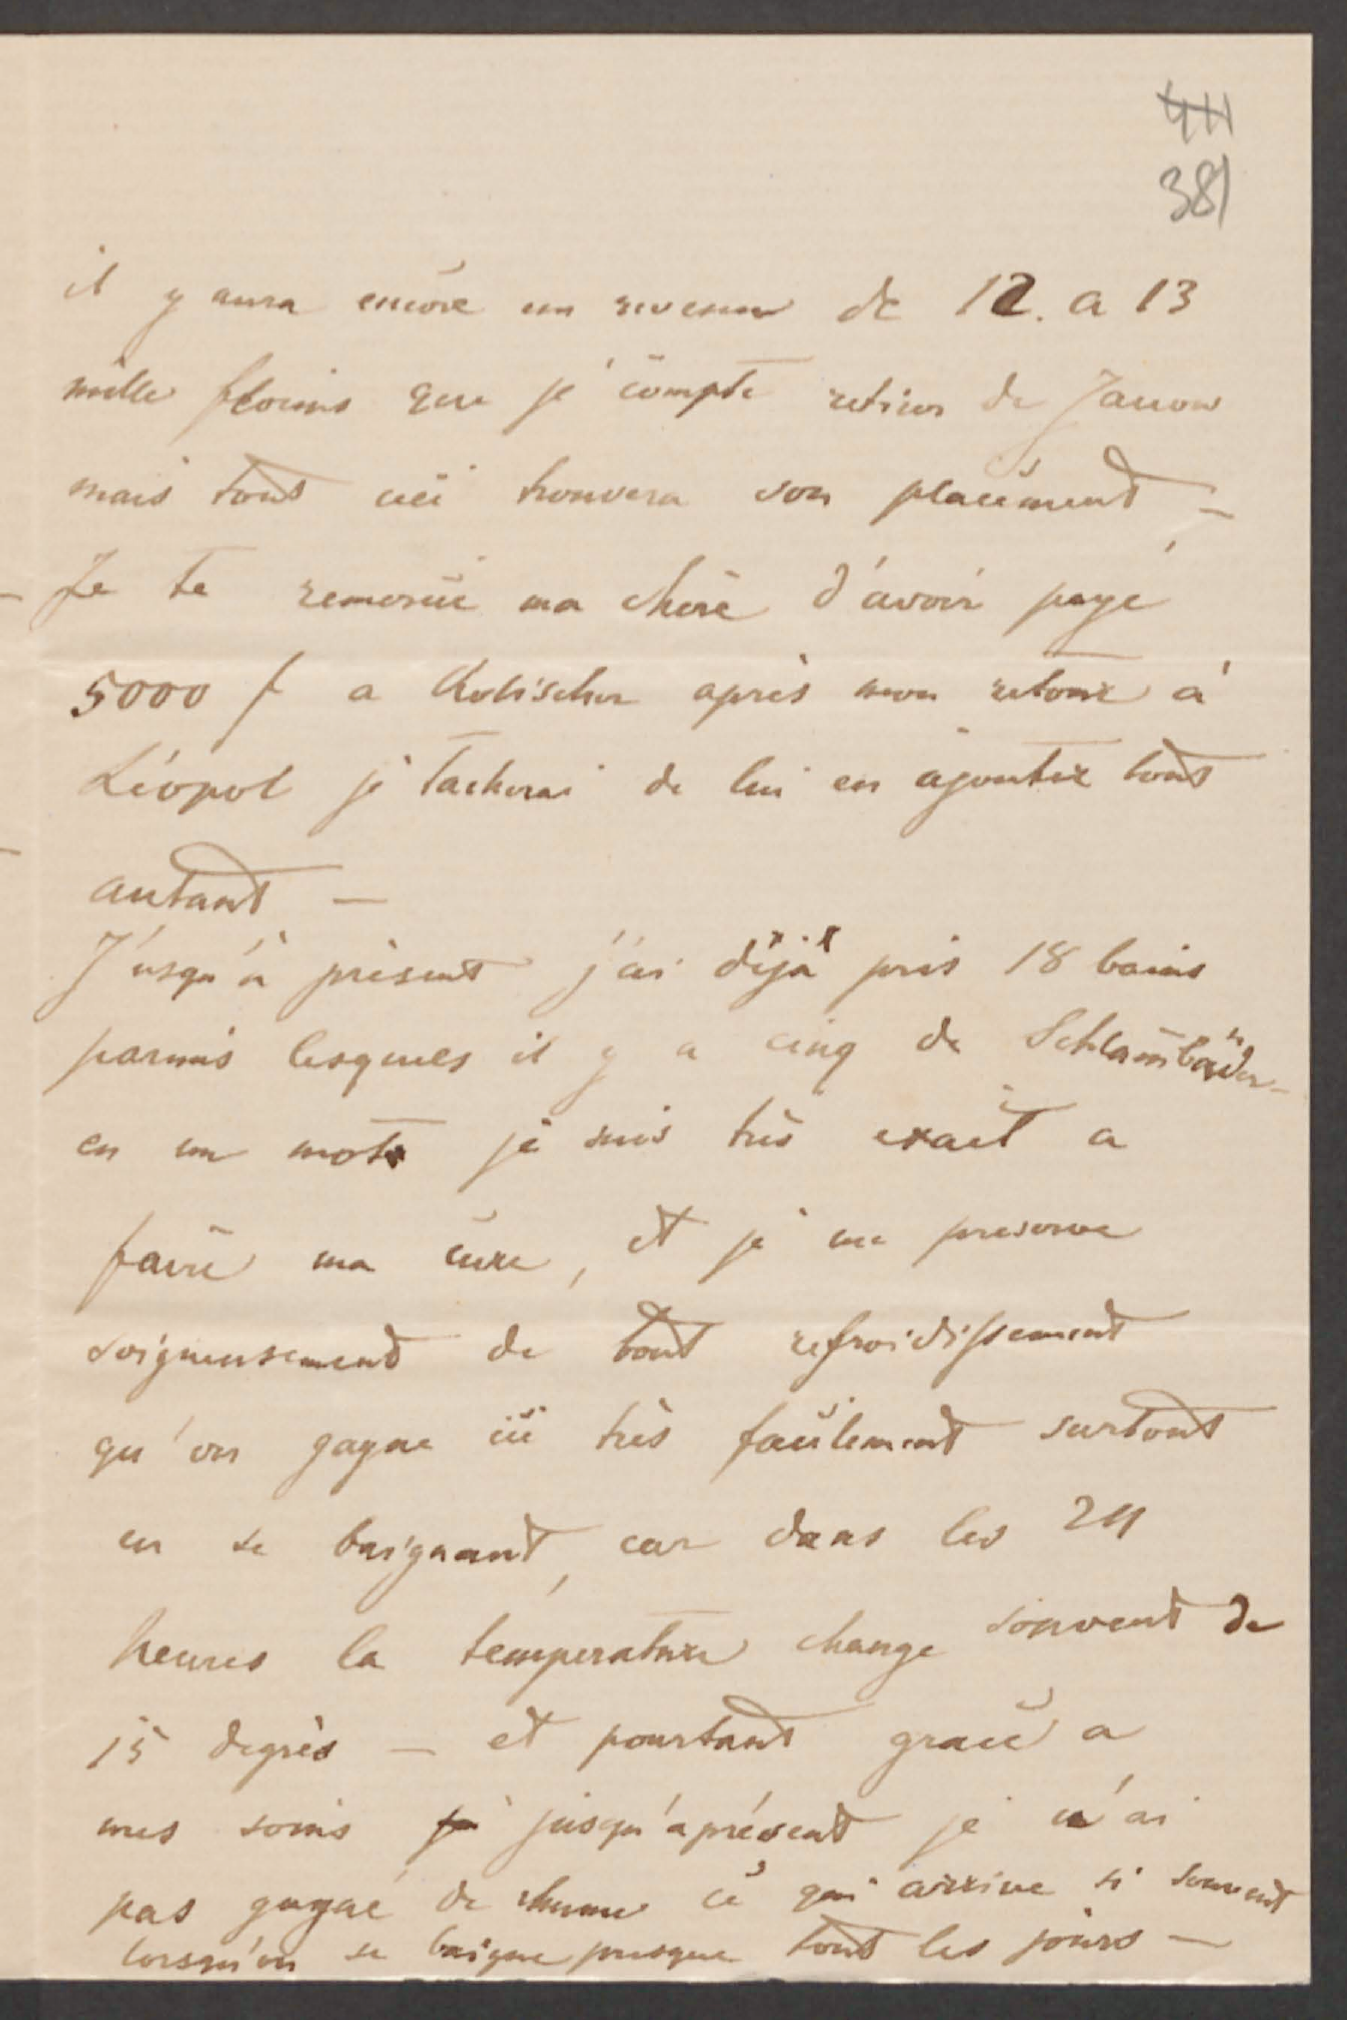 411
381
il y aura encore un revenu de 12. a 13
mille florins que je compte retirer de Jauow
mais tout ceci trouvera son placement –
Je te remercie ma chère d'avoir payé
5000 f a Kolischer après mon retour à
Léopol je tacherai de lui en ajouter tout
autant –
J'usqu'à présent j'ai déjà pris 18 bains
parmis lesquels il y a cinq de Schlambäder –
en un mot je suis très exact a
faire ma cure, et je me preserve
soigneusement de tout refroidissement
qu'on gagne ici très facilement surtout
en se baignant, car dans les 24
heures la température change souvent de
15 degrès – et pourtant grace a
mes soins jusqu'à présent je n'ai
pas gagné de rhume ce qui arrive si souvent
lorsqu'on se baigne presque tout les jours –